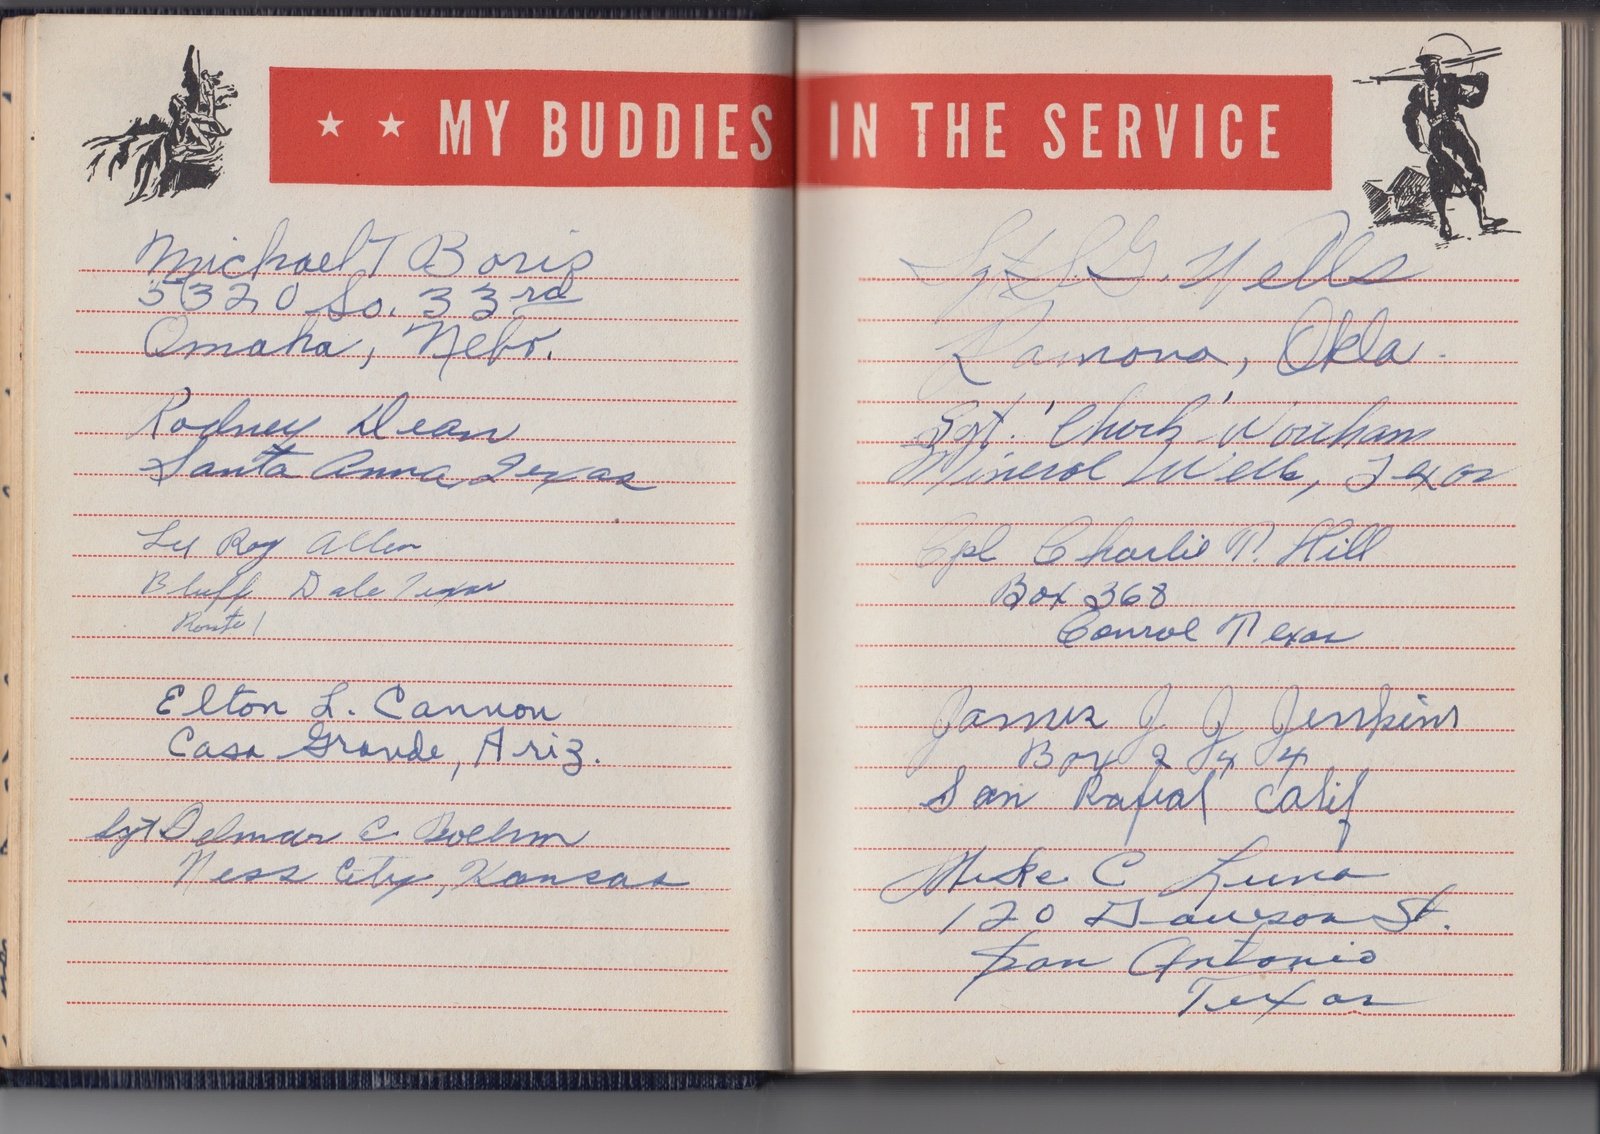 ★ ★ MY BUDDIES IN THE SERVICE
Michael T Boris
5320 So. 33rd
Omaha, Nebr.
Rodney Dean
Santa Anna, Texas
Le Roy Allen
Bluff Dale Texas
Route 1
Elton L. Cannon
Casa Grande, Ariz.
Sgt Delmar C. Boehm
Ness City, Kansas
Sgt S.G. Wells
Ramona, Okla.
Sgt. 'Chuck' Worcham
Mineral Wells, Texas
Cpl Charlie T. Hill
Box 368
Conroe Texas
James J. J Jenkins
Box 244
San Rafael Calif
Mike C Luna
120 Dawson St.
San Antonio
Texas